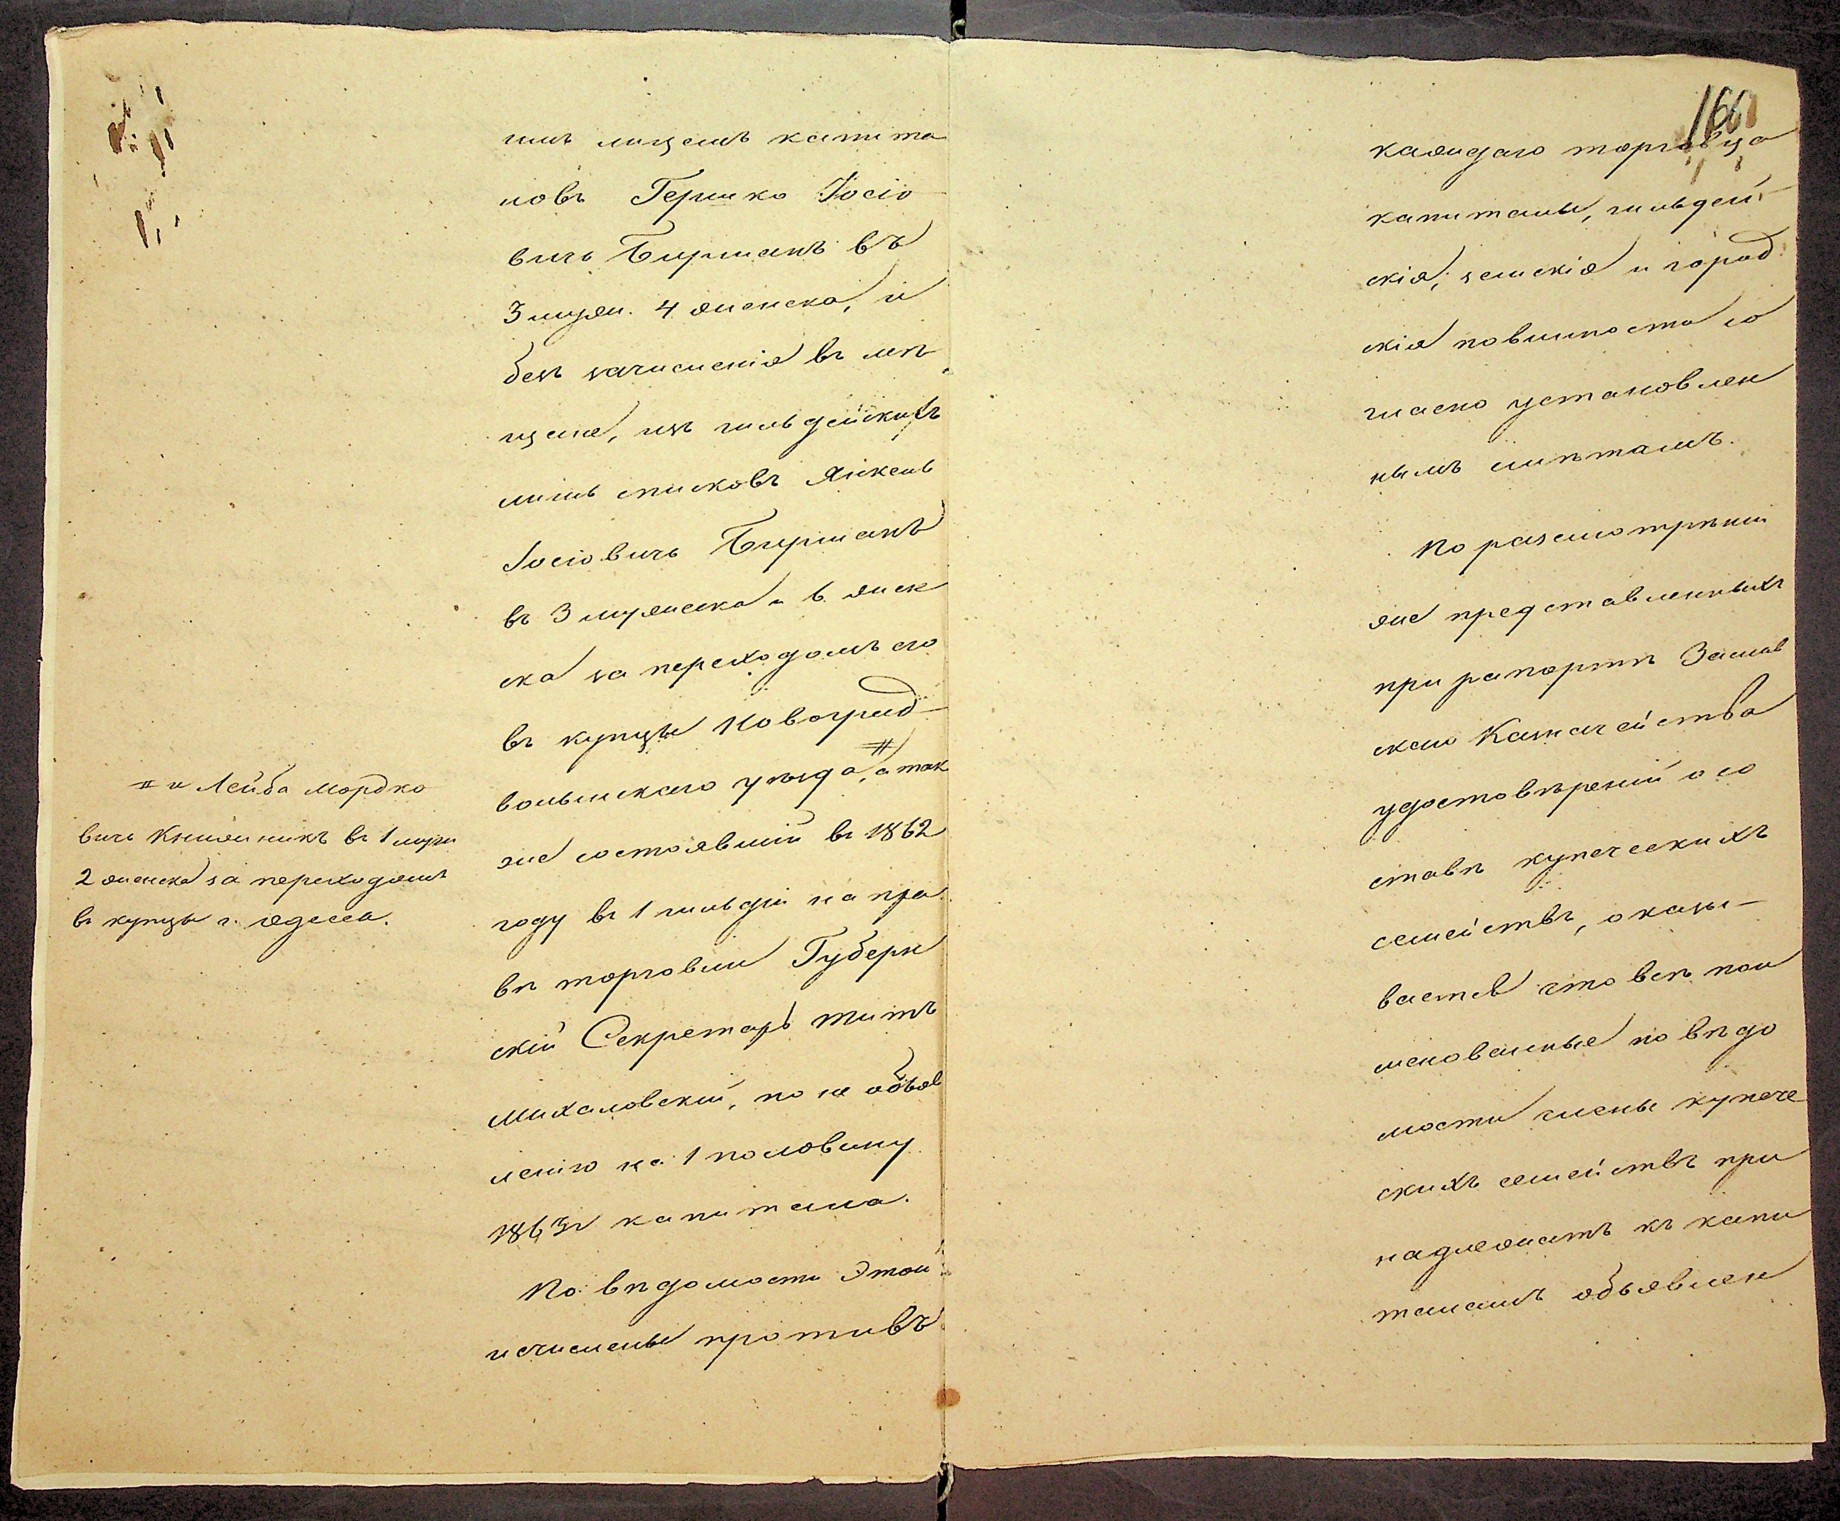 гимъ лицемъ капита
ловъ Гершко Іосіо
вичъ Бирманъ въ
3 муж. 4 женска, и
безъ зачисленія въ мѣ
щане, изъ гильдейскихъ
лишь списковъ Янкель
Іосіовичъ Бирманъ
въ 3 мужеска и 6 женс
ка за переходомъ его
въ купцы Новоград
волынскаго уѣзда, # а так
же состоявшій въ 1862
году въ 1 гильдіи на пра
вѣ торговли Губерн
скій Секретарь Титъ
Михаловскій, по не объяв
ленію на 1 половину
1863 г капитала.
По вѣдомости этой
исчислены противъ
# и Лейба Мордко
вичъ Книжникъ въ 1 муж
2 женска за переходомъ
въ купцы г. Одесса.
166
каждаго торговца
капиталы, гильдей
скія, земскія и город
скія повинности со
гласно установлен
нымъ смѣтамъ.
По разсмотрѣнии
же представленныхъ
при рапортѣ Заслав
скаго Казначейства
удостовѣреній о со
ставѣ купеческихъ
семействъ, оказы-
вается что всѣ пои
менованные по вѣдо
мости члены купече
скихъ семействъ при
надлежатъ къ капи
таламъ объявлен